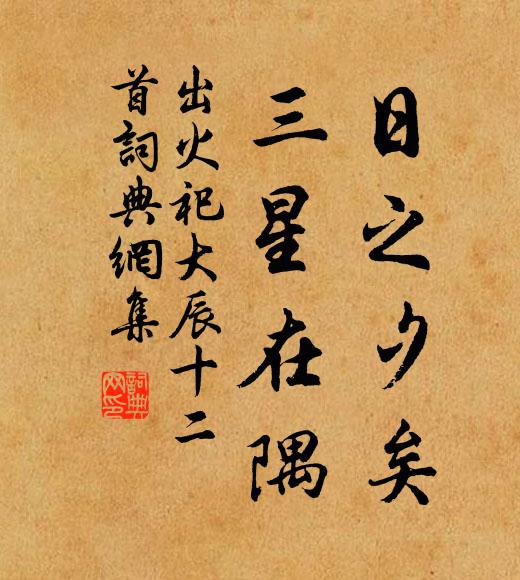 日之夕矣
三星在隅
出火祀大辰十二
首詞典網集
詞典
网印